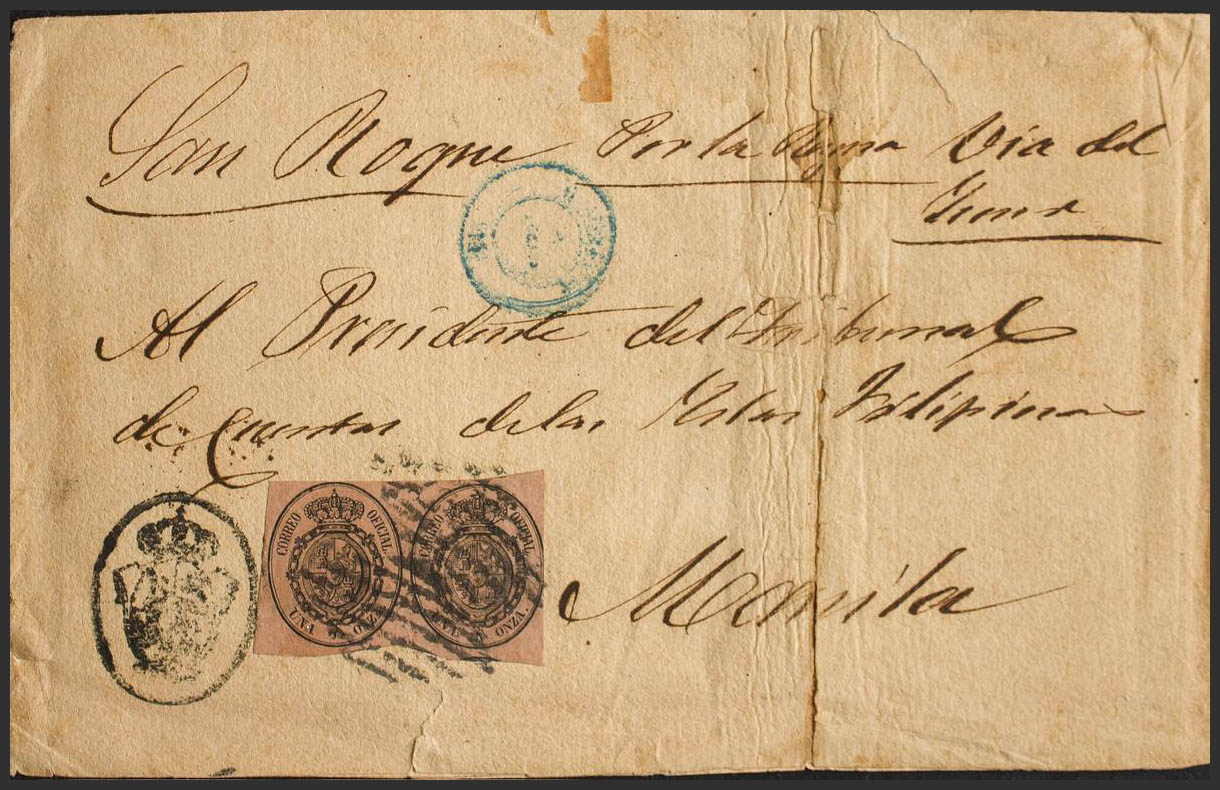 San Roque Por la Via del
Al Presidente del Tribunal
de Cuentas de las Yslas Filipinas
CORREO OFICIAL. UNA ONZA.
CORREO OFICIAL. UNA ONZA.
Manila